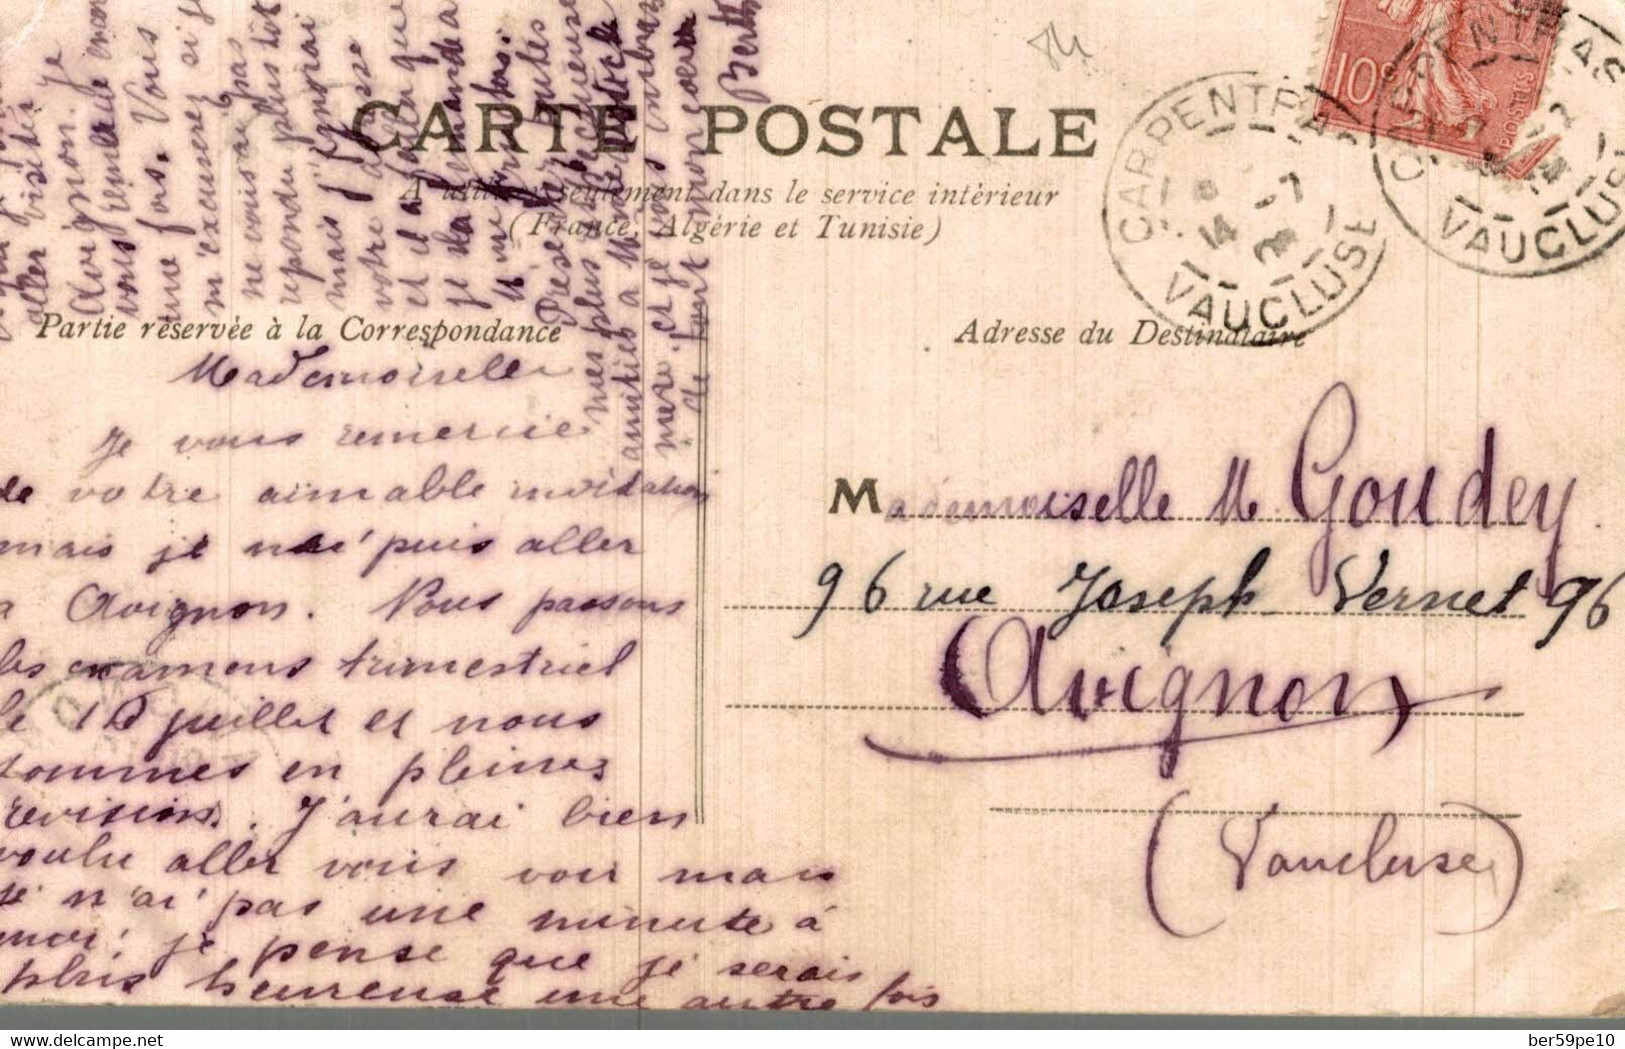 CARTE POSTALE
A utiliser seulement dans le service intérieur
(France, Algérie et Tunisie)
Partie réservée à la Correspondance
Adresse du Destinataire
CARPENTRAS
14 -7
VAUCLUSE
CARPENTRAS
VAUCLUSE
10c
POSTES
Mademoiselle
Je vous remercie
de votre aimable invitation
mais je ne puis aller
a Avignon. Nous passons
les examens trimestriel
le 15 juillet et nous
sommes en pleines
revisions. J'aurai bien
voulu aller vous voir mais
je n'ai pas une minute à
moi: je pense que je serais
plus heureuse une autre fois
aller visiter
Avignon. Je
vous remercie encor
une fois. Vous
m'excuserez si je
ne vous ai pas
repondu plus tôt
mais j'ignorai
votre adresse
et il a fallu que
je la demande a
mes plus
amitiés a
mere et je vous
de tout mon coeur
Berthe
Mademoiselle M. Goudey.
96 rue Joseph Vernet 96
Avignon
(Vaucluse)
ber59pe10